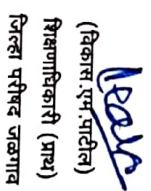 (विकास.एम.पाटील)
शिक्षणाधिकारी (प्राथ)
जिल्हा परीषद जळगाव